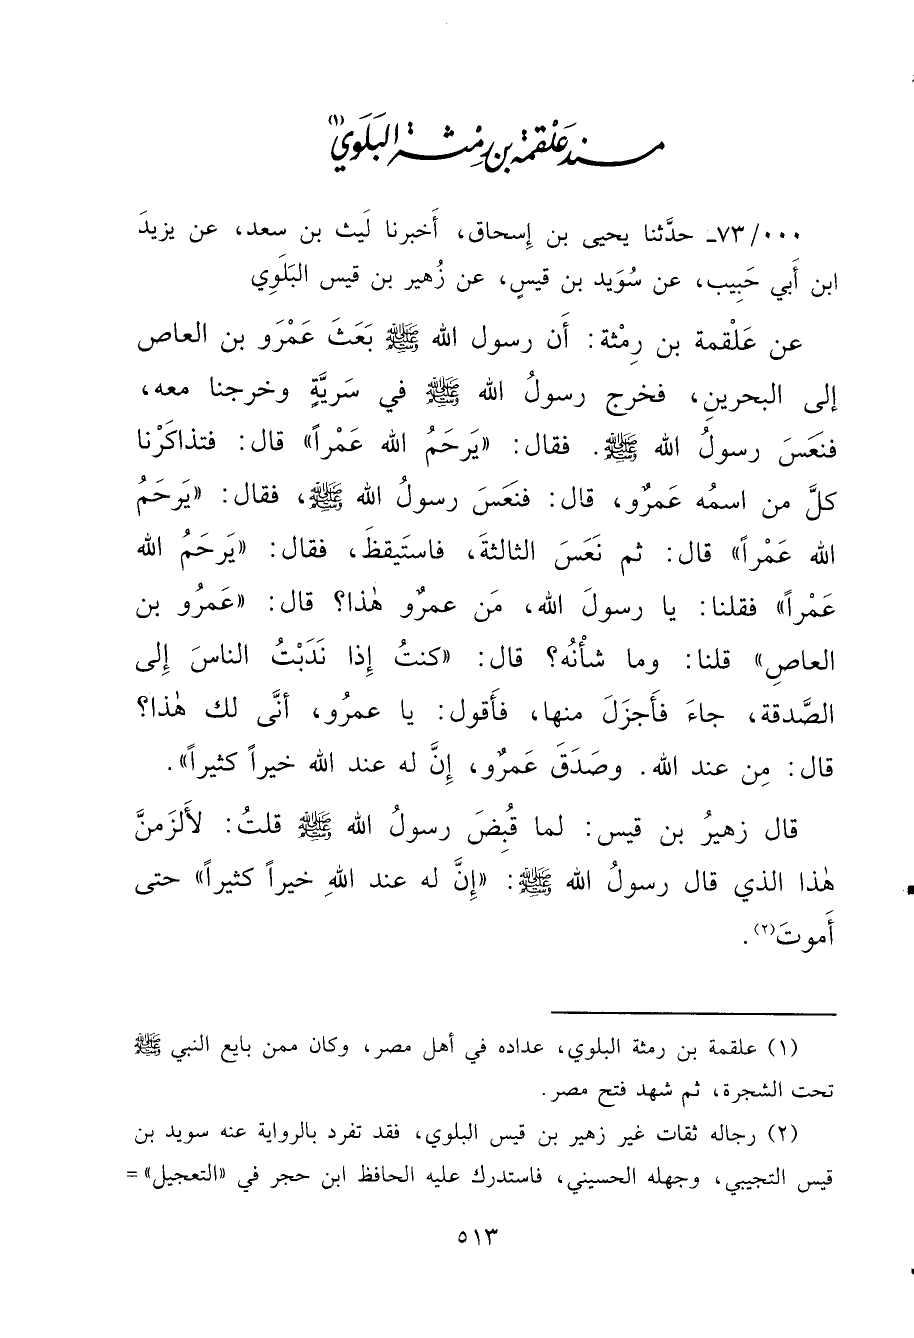 مسند علقمة بن رمثة البلوي(١)
٠٠٠/ ٧٣ـ حدَّثنا يحيى بن إسحاق، أَخبرنا لَيث بن سعد، عن يزيدَ
ابن أَبي حَبِيب، عن سُوَيد بن قيسٍ، عن زُهير بن قيس البَلَوِي
عن عَلْقمة بن رِمْثة: أَن رسول الله ﷺ بَعَثَ عَمْرَو بن العاص
إلى البحرينِ، فخرج رسولُ الله ﷺ في سَريَّةٍ وخرجنا معه،
فنَعَسَ رسولُ الله ﷺ. فقال: «يَرحَمُ الله عَمْراً» قال: فتذاكَرْنا
كلَّ من اسمُه عَمرٌو، قال: فنَعَسَ رسولُ الله ﷺ، فقال: «يَرحَمُ
الله عَمْراً» قال: ثم نَعَسَ الثالثةَ، فاستَيقظَ، فقال: «يَرحَمُ الله
عَمْراً» فقلنا: يا رسولَ الله، مَن عمرٌو هٰذا؟ قال: «عَمرُو بن
العاصِ» قلنا: وما شأْنُه؟ قال: «كنتُ إذا نَدَبْتُ الناسَ إِلى
الصَّدقة، جاءَ فأَجزَلَ منها، فأَقول: يا عمرُو، أنَّى لك هٰذا؟
قال: مِن عند الله. وصَدَقَ عَمرٌو، إِنَّ له عند الله خيراً كثيراً».
قال زهيرُ بن قيس: لما قُبِضَ رسولُ الله ﷺ قلتُ: لأَلزَمنَّ
هٰذا الذي قال رسولُ الله ﷺ: «إِنَّ له عند اللهِ خيراً كثيراً» حتى
أَموتَ(٢).
(١) علقمة بن رمثة البلوي، عداده في أهل مصر، وكان ممن بايع النبي ﷺ
تحت الشجرة، ثم شهد فتح مصر.
(٢) رجاله ثقات غير زهير بن قيس البلوي، فقد تفرد بالرواية عنه سويد بن
قيس التجيبي، وجهله الحسيني، فاستدرك عليه الحافظ ابن حجر في «التعجيل» =
٥١٣